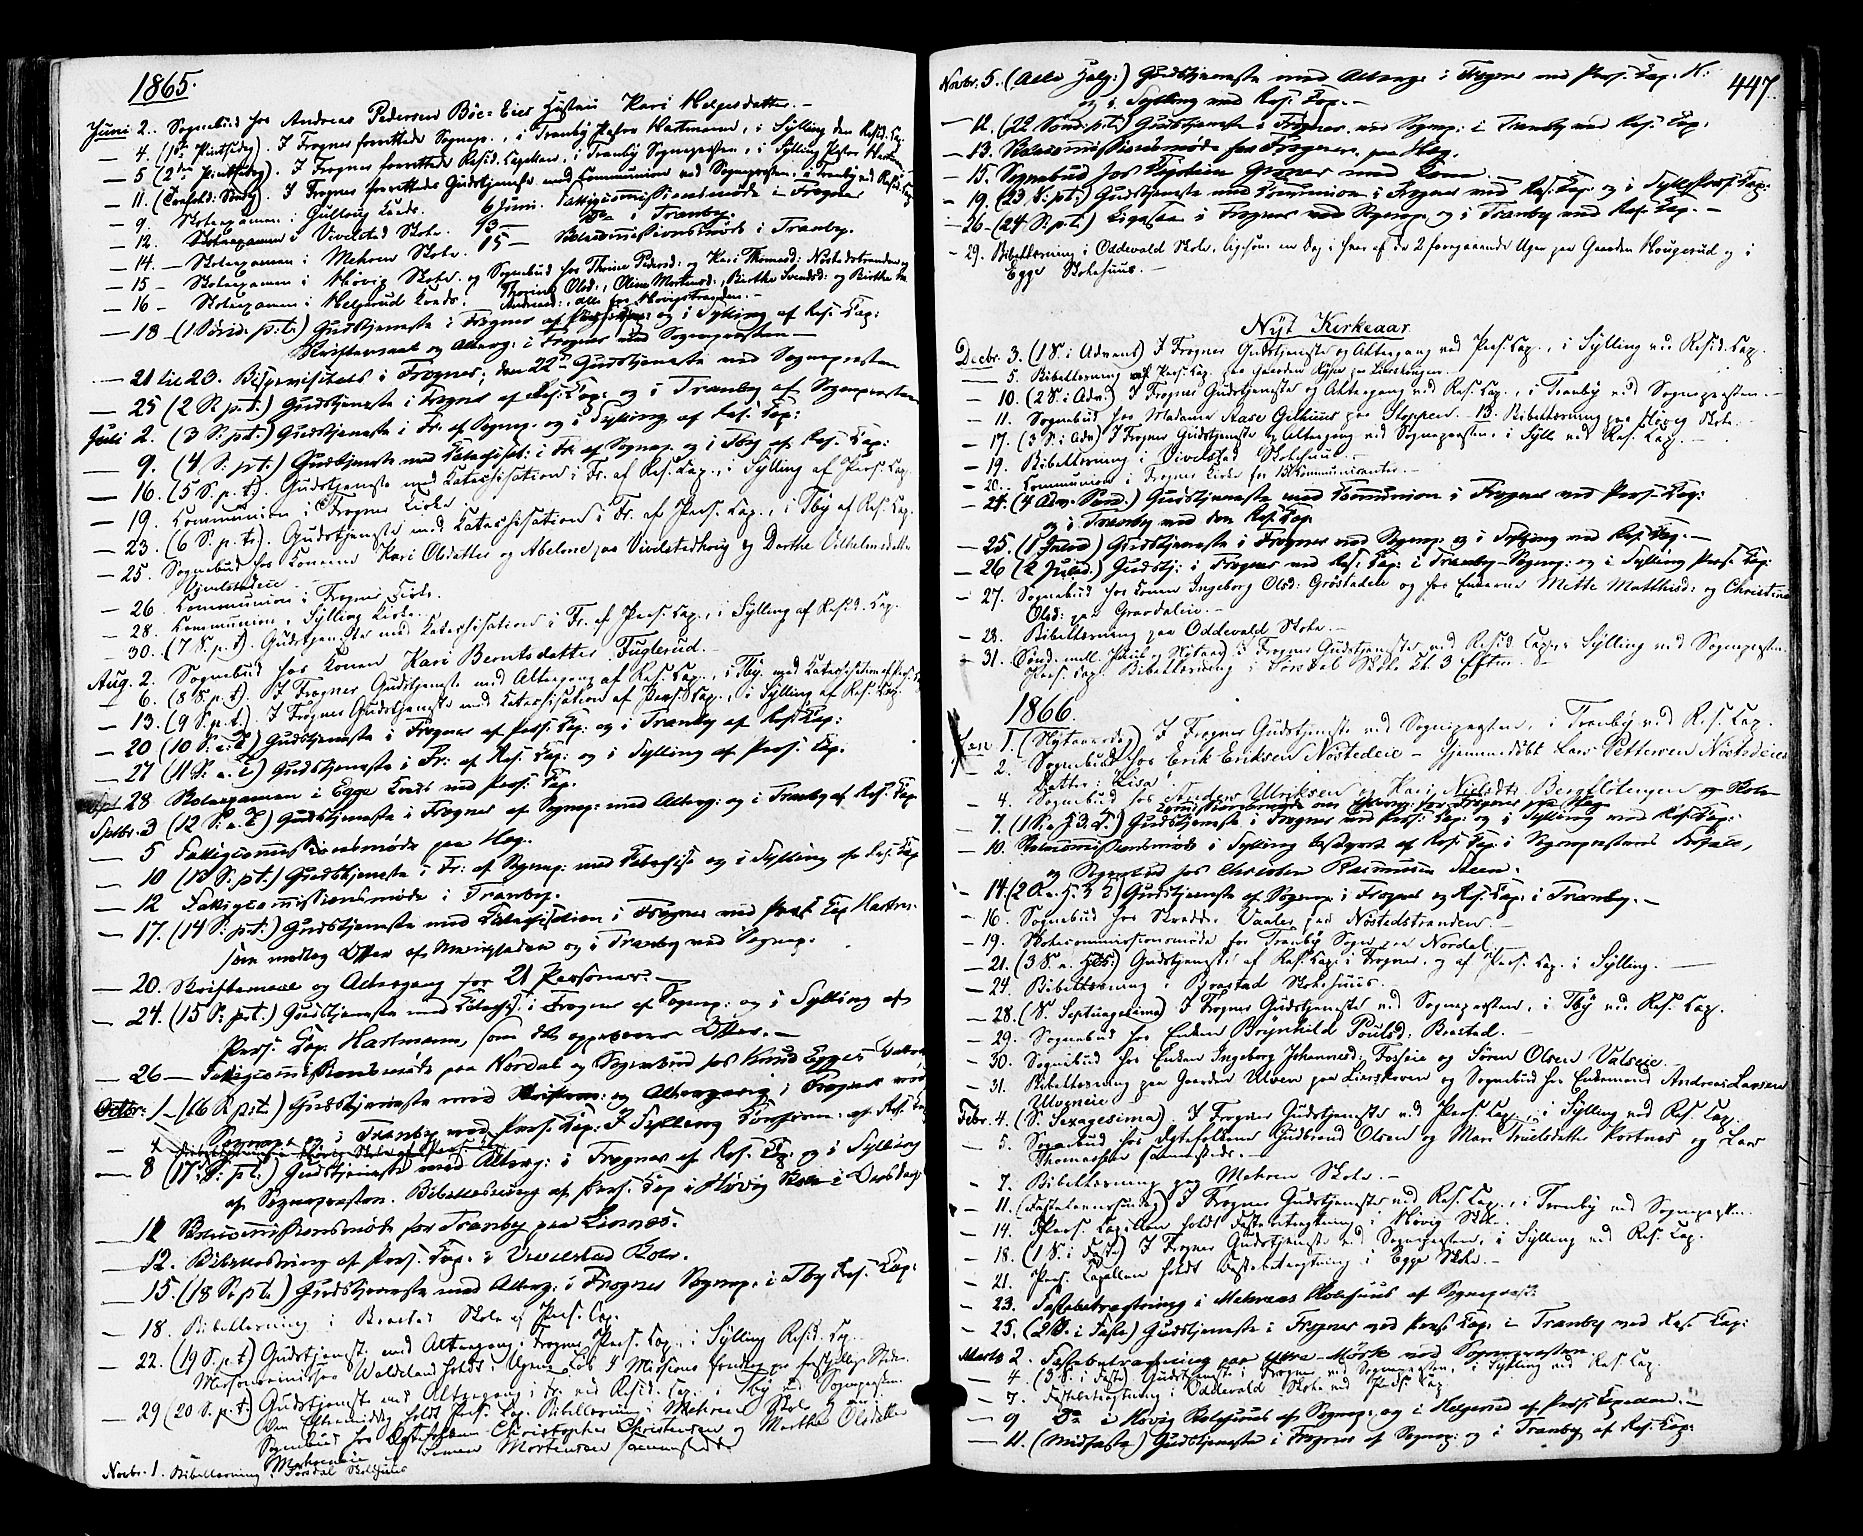 1865.
Juni 2. Sognebud hos Andreas Pedersen Böe-Eies Hustru Kari Helgesdatter. –
— 4. (1ste Pintsedag). I Frogner forrettede Sognep., i Tranby Pastor Hartmann, i Sylling den Resid. Cap.
— 5 (2den Pintsedag). I Frogner forrettede Resid. Capellan, i Tranby Sognepresten, i Sylling Pastor Hartmann
— 11. (Trefold. Søndag). I Frogner forrettedes Gudstjeneste med Communion ved Sognepresten, i Tranby ved Resid. Cap.
— 9. Skoleexamen i Gullaug Kreds. 6 Juni. Fattigcommissionsmøde i Frogner
— 12. Skoleexamen i Vivelstad Skole. 13 — Do i Tranby.
— 14. — Skoleexamen i Mehren Skole. 15 — Skolecommissionsmøde i Tranby.
— 15 — Skoleexamen i Høvig Skole og Sognebud hos Thrine Pedersd: og Kari Thomasd: Nøstedstranden og
— 16 — Skoleexamen i Helgerud Kreds. Thorine Olsd:, Oline Mortensd:, Berthe Svendsd: og Berthe
Andreasd:, alle fra Høvigstranden. –
— 18 (1 Sønd: p: tr:) Gudstjeneste i Frogner af Pers: Cap: og i Sylling af Res. Cap:
Skriftemaal og Alterg: i Frogner ved Sognepresten —
— 21 til 23. Bispevisitats i Frogner; den 22de Gudstjeneste ved Sognepresten
— 25 (2 S. p. t.) Gudstjeneste i Frogner af Res: Cap: og i Tranby af Sognepresten
Juli 2. (3 S: pt:) Gudstjeneste i Fr. af Sognep. og i Sylling af Res. Cap:
— 9. (4 S. pt:) Gudstjeneste med Katechisat: i Fr. af Sognep. og i Tby af Res. Cap:
— 16. (5 S. p. t). Gudstjeneste med Katechisation i Fr. af Res. Cap., i Sylling af Pers. Cap.
— 19. Kommunion i Frogner Kirke.
— 23. (6 S. p. tr). Gudstjeneste med Katechisation i Fr. af Pers. Cap., i Tby af Res. Cap.
— 25. Sognebud hos Konerne Kari Olsdatter og Abelone paa Vivelstadhaug og Dorthe Vilhelmsdatter
— 26. Kommunion i Frogner Kirke.
— 28. Kommunion i Sylling Kirke.
— 30. (7 S. p. t). Gudstjeneste med Katechisation i Fr. af Pers. Cap., i Sylling af Resid. Cap.
Aug. 2. Sognebud hos Konen Kari Berntsdatter Fuglerud. –
— 6. (8 S. p. t). I Frogner Gudstjeneste med Altergang af Res. Cap., i Tby. med Katechisation af Pers. C.
— 13. (9 S. p. t.). I Frogner Gudstjeneste med Katechisation af Pers. Cap., i Sylling af Res. Cap.
— 20 (10 S. e: T) Gudstjeneste i Frogner af Pers: Cap: og i Tranby af Res: Cap:
— 27 (11 S: e. T) Gudstjeneste i Fr: af Res. Cap: og i Sylling af Pers. Cap.
— 28 Skoleexamen i Egge Kreds ved Pers: Cap:
Sptbr. 3 (12 S: e. T) Gudstjeneste i Frogner af Sognep: med Alterg: og i Tranby af Res. Cap
— 5 Fattigcommissionsmøde paa Heg.
— 10 (13 S: pt.) Gudstjeneste i Fr. af Sognep: med Catechise og i Sylling af Res. Cap
— 12 Fattigcommissionsmøde i Tranby.
— 17. (14 S: pt:) Gudstjeneste med Catechisation i Frogner ved Pers. Cap Hartm:
som modtog Offer af Menigheden og i Tranby ved Sognep:
— 20. Skriftemaal og Altergang for 21 Personer. —
— 24. (15 S: pt.) Gudstjeneste med Catechis: i Frogner af Sognep: og i Sylling af
Pers: Cap. Hartmann, som der oppebar Offer. —
— 26 — Fattigcommissionsmøde paa Nordal og Sognebud hos Knud Egges
Octbr: 1 — (16 S. p: t.) Gudstjeneste med Skriftem: og Altergang i Frogner ved
Sognep: og i Tranby ved Pers: Cap: I Sylling af Res. Cap
— 8 (17 S: pt.) Gudstjeneste med Alterg: i Frogner af Res. Cap: og i Sylling
af Sognepresten. Bibellæsning af Pers. Cap i Høvig Skole
— 11 Skolecommissionsmøde for Tranby paa Linnes.
— 12. Bibellæsning af Pers. Cap. i Vivelstad Skole.
— 15. (18 S: p t.) Gudstjeneste med Alterg: i Frogner Sognep. i Tby Pers. Cap:
— 18. Bibellæsning i Brastad Skole af Pers. Cap.
— 22. (19 S. p. t) Gudstjeneste med Altergang i Frogner Pers. Cap., i Sylling Resid. Cap.
— 29 (20 S. p. t) Gudstjeneste med Altergang i Fr. ved Resid. Cap. i Tby ved Sognepresten.
Om Eftermiddag holdt Pers. Cap. Bibellæsning i Mehren Skole
Sognebud hos Christopher Christensen og Marthe Olsdatter
Mortensen sammesteds
Novbr. 1. Bibellæsning i Torsdal Skolehuus
447.
Novbr. 5. (Alle Helg:) Gudstjeneste med Alterg: i Frogner ved Pers. Cap. H:
og i Sylling ved Res. Cap. –
— 12. (22 Sønd. p. t.) Gudstjeneste i Frogner ved Sognep: i Tranby ved Res. Cap.
— 13. Skolecommissionsmøde for Frogner paa Heg.
— 15. Sognebud hos
— 19. (23 S: pt:) Gudstjeneste med Communion i Frogner ved Res. Cap. og i Sylling Pers. Cap:
— 26 — (24 S: p. t.) Ligesaa i Frogner ved Sognep. og i Tranby ved Res. Cap. –
— 29. Bibellæsning i Oddevald Skole, ligesom en Dag i hver af de 2 foregaaende Uger paa Gaarden Hougerud og i
Egge Skolehuus. –
Nyt Kirkeaar.
Decbr. 3. (1 S. i Advent) I Frogner Gudstjeneste og Altergang ved Pers. Cap., i Sylling ved Resid. Cap.
— 5. Bibellæsning af Pers. Cap. paa Gaarden
— 10. (2 S. i Adv.) I Frogner Gudstjeneste og Altergang ved Res. Cap., i Tranby ved Sognepresten. —
— 11. Sognebud hos Madame Aase Gilhuus paa Stoppen. 13. Bibellæsning paa Høvig Skole.
— 17. (3 S. i Adv) I Frogner Gudstjeneste og Altergang ved Sognepresten, i Sylling ved Res. Cap.
— 19. Bibellæsning i Vivelstad Skolehuus. –
— 20. Communion i Frogner Kirke for 15 Kommunicanter. –
— 24. (4 Adv. Sønd.) Gudstjeneste med Communion i Frogner ved Pers: Cap:
og i Tranby ved den Res. Cap.
— 25. (1 Juled) Gudstjeneste i Frogner ved Sognep. og i Sylling ved Res. Cap. —
— 26 (2 Juled.) Gudstj: i Frogner ved Res. Cap: i Tranby Sognep: og i Sylling Pers. Cap:
— 27. Sognebud hos Konen Ingeborg Olsd: Gröstadeie og hos Enkerne Mitte Matthisd: og Christine
Olsd: paa Graadalen. –
— 28. Bibellæsning paa Oddevald Skole. –
— 31. Sønd. mell. Juul og Nytaar) I Frogner Gudstjeneste ved Resid. Cap., i Sylling ved Sognepresten.
Pers. Cap. Bibellæsning i Torsdal Skole Kl. 3 Efterm. –
1866.
Jan 1. (Nytaarsdag) I Frogner Gudstjeneste ved Sognepresten, i Tranby ved Res. Cap.
— 2. Sognebud hos Erik Eriksen Nöstedeie – hjemmedøbt Lars Pettersen Nöstedeies
Datter: "Lisa".
— 4. Sognebud hos Anders Ulriksen og Kari Nielsdtr Bergflötengen og Skole-
commissionsmøde for Frogner paa Heg
— 7. (1 S. e. H 3 K.) Gudstjeneste i Frogner ved Pers: Cap: og i Sylling ved Res. Cap:
— 10. Skolecommissionsmøde i Sylling bestyret af Res. Cap: i Sogneprestens Forfald,
og Sognebud hos Christen Rasmussen Steen.
— 14. (2 S. e. H. 3 K) Gudstjeneste af Sognep. i Frogner og Res. Cap. i Tranby. –
— 16. Sognebud hos Skrædder Vaaler paa Nöstedstranden –
— 19. Skolecommissionsmøde for Tranby Sogn paa Nordal –
— 21. (3 S. e. H3K) Gudstjeneste af Res. Cap. i Frogner, og af Pers. Cap. i Sylling. —
— 24. Bibellæsning i Brastad Skolehuus.
— 28. (S. Septuagesima) I Frogner Gudstjeneste ved Sognepresten, i Tby ved Res. Cap.
— 29. Sognebud hos Enken Brynhild Poulsd: Brastad. —
— 30. Sognebud hos Enken Ingeborg Johannesd: Fosseie og Sören Olsen Valseie. –
— 31. Bibellæsning paa Gaarden Ulven paa Lierskoven og Sognebud hos Enkemand Andreas Larsen
Ulvgneie
Febr. 4. (S. Sexagesima). I Frogner Gudstjeneste ved Pers. Cap., i Sylling ved Res. Cap.
— 5. Sognebud hos Ægtefolkene Gudbrand Olsen og Mari Truelsdatter Kortnes og Lars
Thomassen sammesteds. –
— 7. Bibellæsning paa Mehren Skole. –
— 11. (Fastelavnssøndag) I Frogner Gudstjeneste ved Res. Cap., i Tranby ved Sognepresten.
— 14. Pers. Capellan holdt Fastebetragtning i Høvig Skole. –
— 18. (1 S. i Faste) I Frogner Gudstjeneste ved Sognepresten, i Sylling ved Res. Cap.
— 21. Pers. Capellan holdt Fastebetragtning i Egge Skole. –
— 23. Fastebetragtning i Mehrens Skolehuus af Sogneprest:
— 25. (2 S. i Faste) Gudstjeneste i Frogner ved Pers. Cap. i Tranby ved Res. Cap:
Marts 2. Fastebetragtning paa Øvre-Mörk ved Sognepresten.
— 4 (3 S. i Faste) Gudstjeneste i Frogner ved Sognepresten, i Sylling ved Res. Cap.
— 7. Fastebetragtning i Oddevald Skole ved Pers. Cap
— 9 Do i Høvig Skolehuus af Sognep: og i Helgerud af Pers: Capellan. –
— 11. (Midfaste) Gudstjeneste i Frogner af Sognep: og i Tranby af Res. Cap: